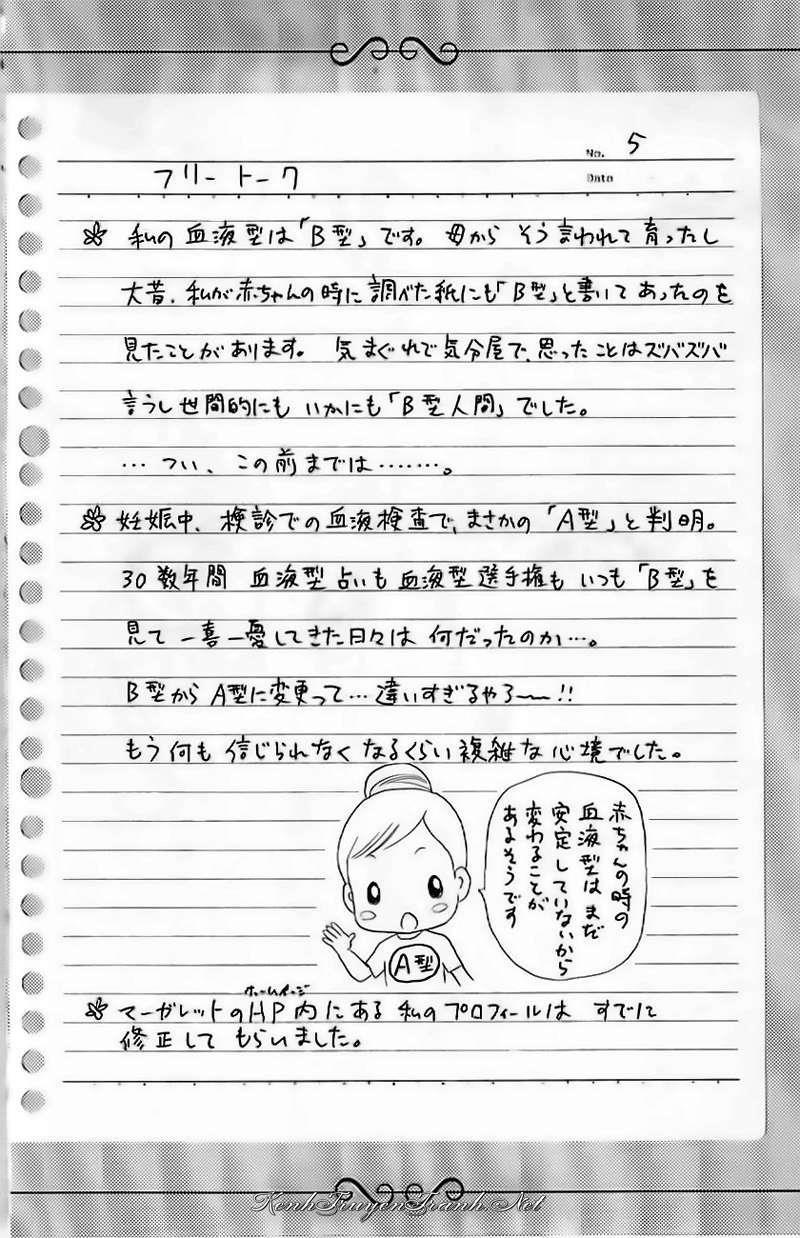 No. 5
Date
フリートーク
私の血液型は「B型」です。母からそう言われて育ったし
大昔、私が赤ちゃんの時に調べた紙にも「B型」と書いてあったのを
見たことがあります。気まぐれで気分屋で、思ったことはズバズバ
言うし世間的にもいかにも「B型人間」でした。
…つい、この前までは………。
妊娠中、検診での血液検査で、まさかの「A型」と判明。
30数年間 血液型占いも血液型選手権もいつも「B型」を
見て一喜一憂してきた日々は何だったのか…。
B型からA型に変更って…違いすぎるやろ〜〜!!
もう何も信じられなくなるくらい複雑な心境でした。
赤ちゃんの時の
血液型はまだ
安定していないから
変わることが
あるそうです
A型
ホームページ
マーガレットのHP内にある私のプロフィールはすでに
修正してもらいました。
KenhTruyenTranh.Net